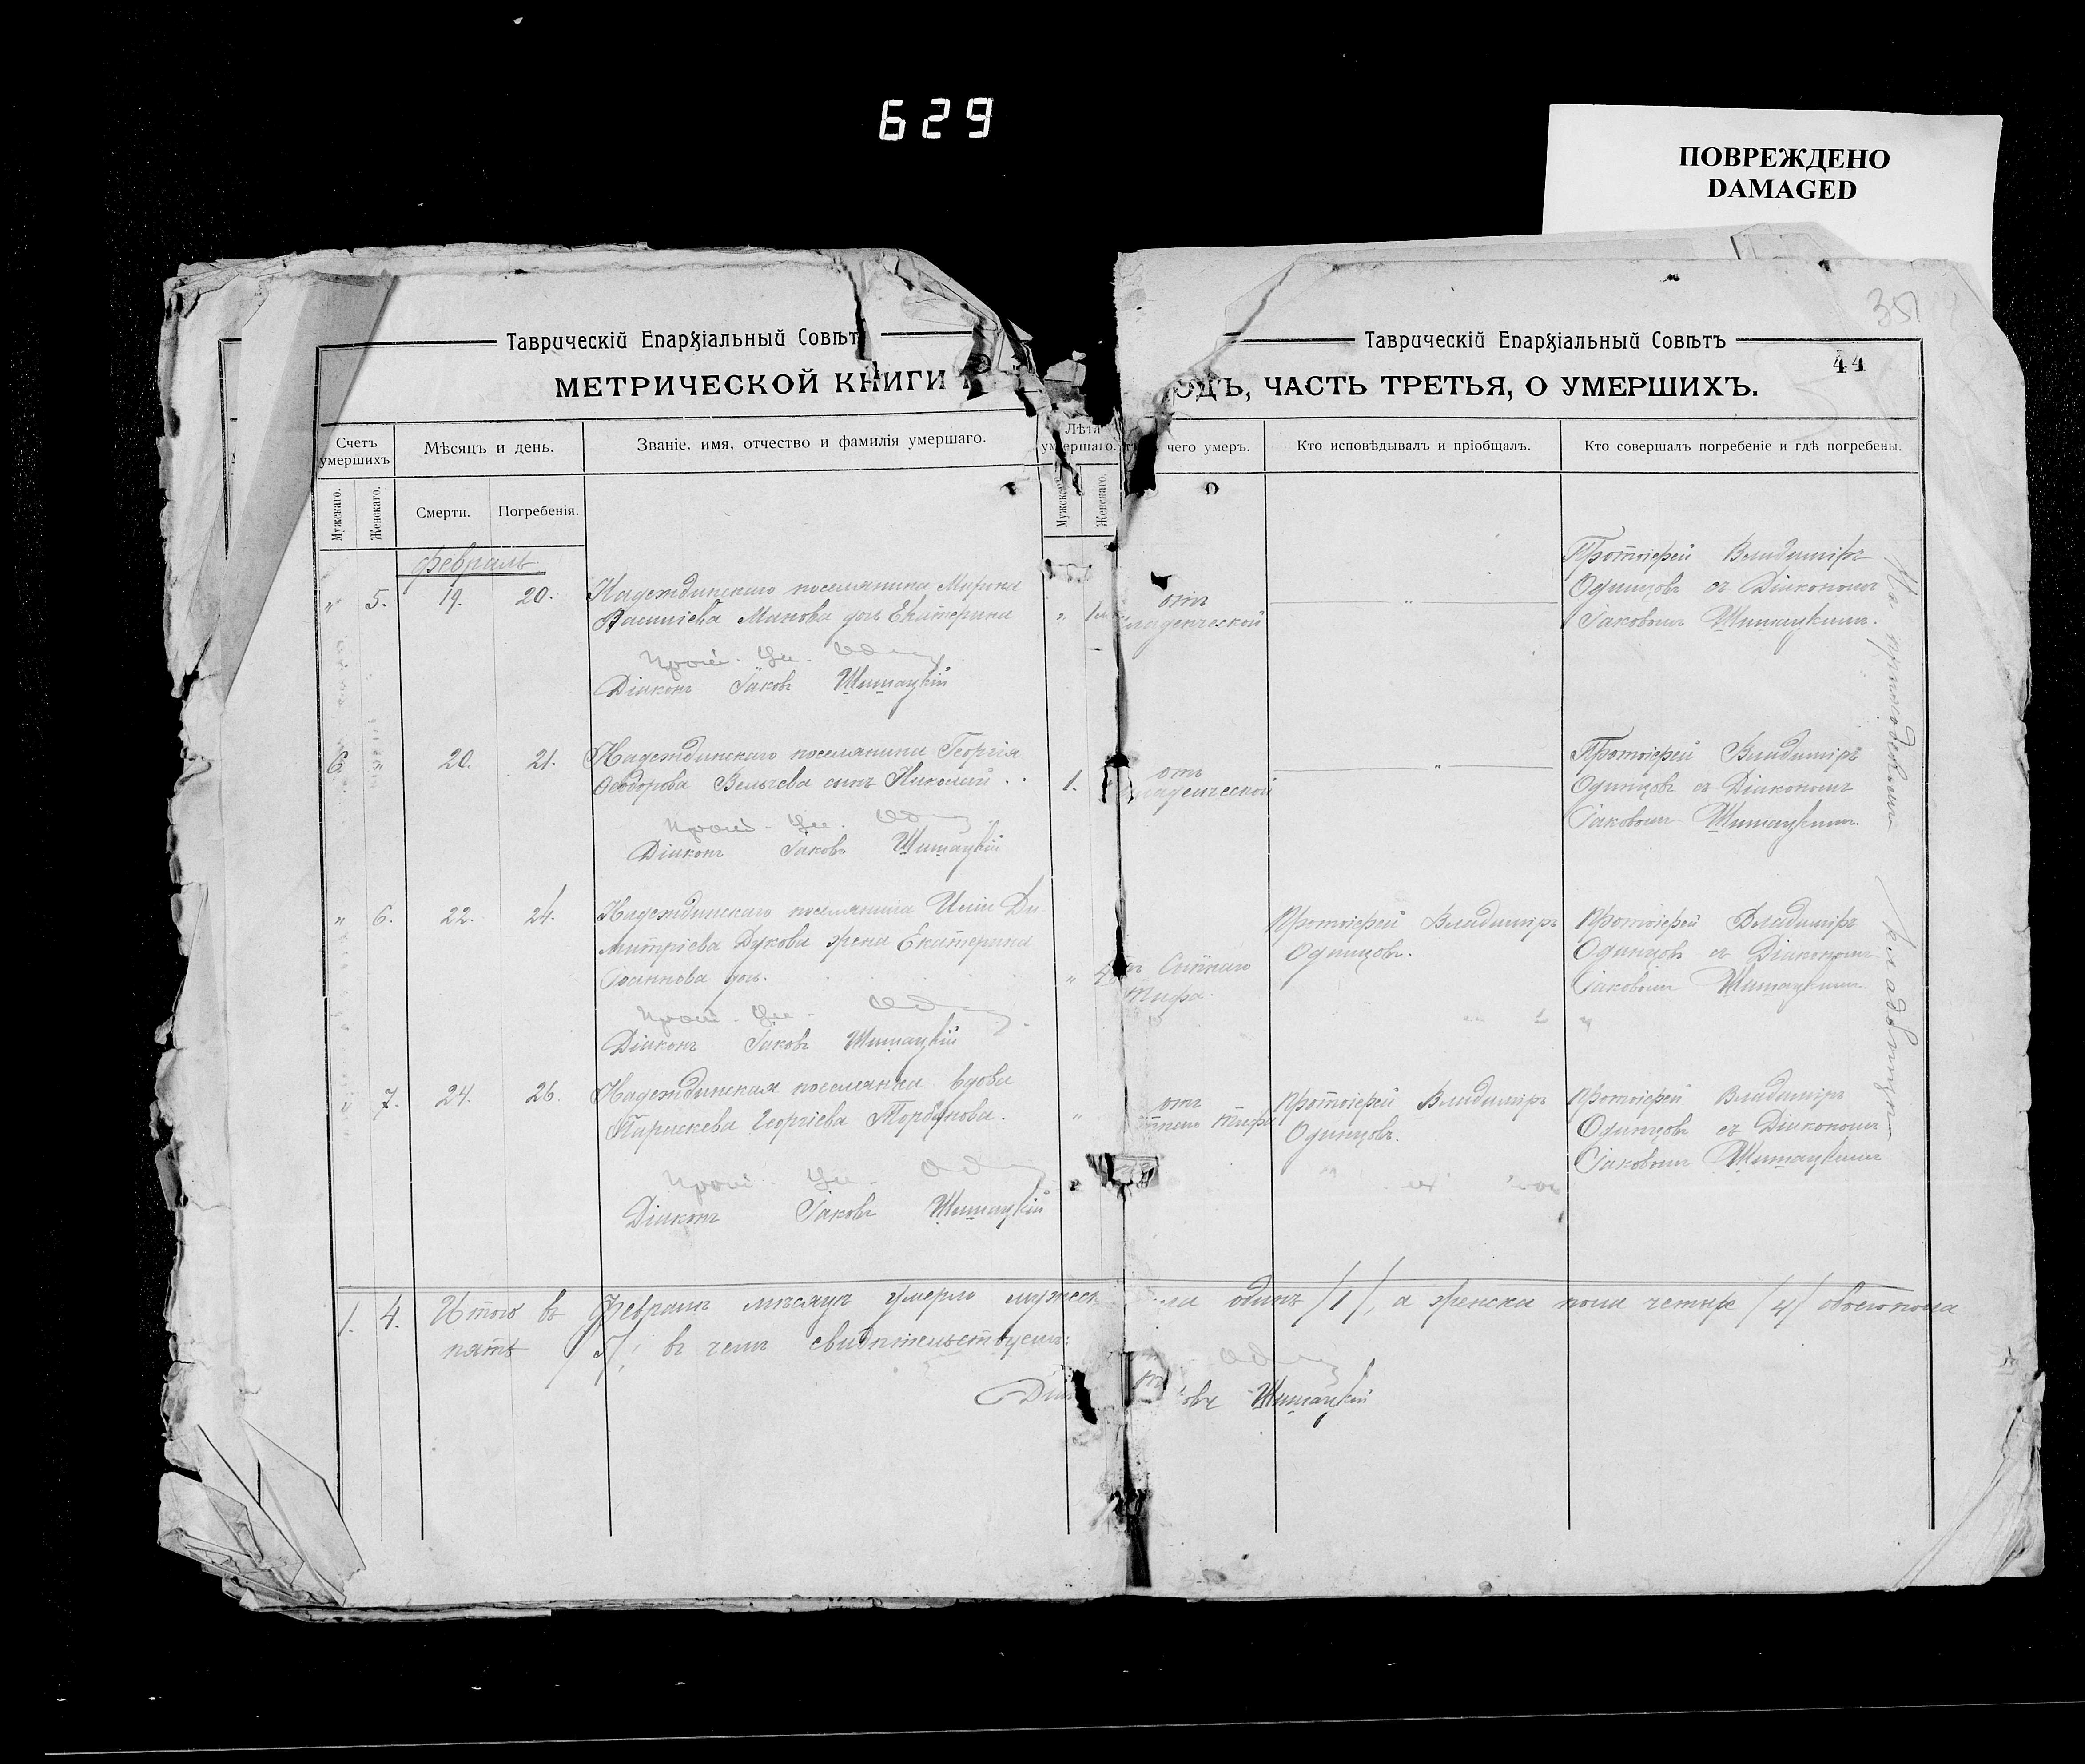 629
ПОВРЕЖДЕНО
DAMAGED
35
Таврическій Епархіальный Совѣтъ
Таврическій Епархіальный Совѣтъ
44
МЕТРИЧЕСКОЙ КНИГИ
ОДЪ, ЧАСТЬ ТРЕТЬЯ, О УМЕРШИХЪ.
Счетъ умершихъ
Мѣсяцъ и день.
Званіе, имя, отчество и фамилія умершаго.
Лѣта умершаго.
чего умеръ.
Кто исповѣдывалъ и пріобщалъ.
Кто совершалъ погребеніе и гдѣ погребены.
Мужскаго.
Женскаго.
Смерти.
Погребенія.
Мужскаго
Женскаго.
февраль
" 5. 19. 20.
Надеждинскаго поселянина Марина
Василіева Манова дочь Екатерина
" 1
отъ
младенческой
"
Протоіерей Владиміръ
Одинцовъ съ Діакономъ
Іаковомъ Шишацкимъ.
Прот. Вл. Один
Діаконъ Іаковъ Шишацкій
6. " 20. 21.
Надеждинскаго поселянина Георгія
Ѳеодорова Велычева сынъ Николай
1.
отъ
младенческой
"
Протоіерей Владиміръ
Одинцовъ съ Діакономъ
Іаковомъ Шишацкимъ.
Прот. Вл. Один
Діаконъ Іаковъ Шишацкій
" 6. 22. 24.
Надеждинскаго поселянина Иліи Ди
митріева Дукова жена Екатерина
Іоаннова дочь.
"
Сыпного
тифа.
Протоіерей Владиміръ
Одинцовъ.
Протоіерей Владиміръ
Одинцовъ съ Діакономъ
Іаковомъ Шишацкимъ
Прот. Вл. Один
Діаконъ Іаковъ Шишацкій
" 7. 24. 26.
Надеждинская поселянка вдова
Параскева Георгіева Торбунова.
"
отъ
тифа
Протоіерей Владиміръ
Одинцовъ.
Протоіерей Владиміръ
Одинцовъ съ Діакономъ
Іаковомъ Шишацкимъ
Прот. Вл. Один
Діаконъ Іаковъ Шишацкій
На приходскомъ кладбищѣ
1. 4. Итого въ Февралѣ мѣсяцѣ умерло мужеск пола одинъ /1/, а женска пола четыре /4/ обоего пола
пять /5/; въ чемъ свидѣтельствуемъ:
Діа овъ Шишацкій